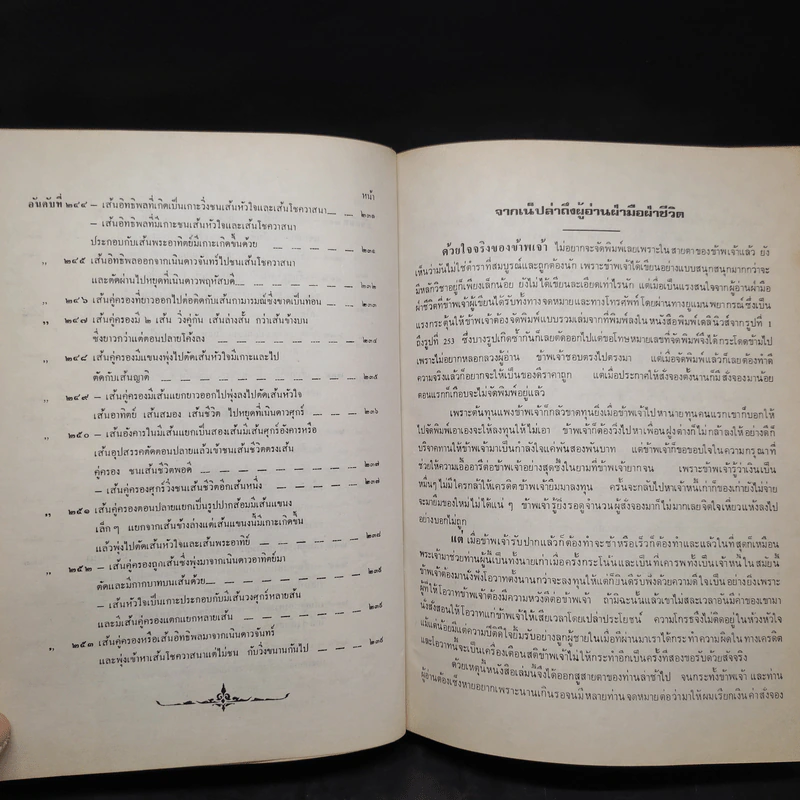 หน้า
อันดับที่ ๒๔๔ – เส้นอิทธิพลที่เกิดเป็นเกาะวิ่งชนเส้นหัวใจและเส้นโชควาสนา ๒๓๑
– เส้นอิทธิพลที่มีเกาะชนเส้นหัวใจและเส้นโชควาสนา
ประกอบกับเส้นพระอาทิตย์มีเกาะเกิดขึ้นด้วย ๒๓๑
,, ๒๔๕ เส้นอิทธิพลออกจากเนินดาวจันทร์ไปชนเส้นโชควาสนา
และตัดผ่านไปหยุดที่เนินดาวพฤหัสบดี ๒๓๒
,, ๒๔๖ เส้นคู่ครองที่ยาวออกไปต่อติดกับเส้นกามารมณ์ซึ่งขาดเป็นท่อน ๒๓๓
,, ๒๔๗ เส้นคู่ครองมี ๒ เส้น วิ่งคู่กัน เส้นล่างสั้น กว่าเส้นข้างบน
ซึ่งยาวกว่าแต่ตอนปลายโค้งลง ๒๓๔
,, ๒๔๘ เส้นคู่ครองมีแขนงพุ่งไปตัดเส้นหัวใจมีเกาะและไป
ตัดกับเส้นญาติ ๒๓๕
,, ๒๔๙ – เส้นคู่ครองมีเส้นแยกยาวออกไปพุ่งลงไปตัดเส้นหัวใจ
เส้นอาทิตย์ เส้นสมอง เส้นชีวิต ไปหยุดที่เนินดาวศุกร์ ๒๓๖
,, ๒๕๐ – เส้นอังคารในมีเส้นแยกเป็นสองเส้นมีเส้นศุกร์อังคารหรือ
เส้นอุปสรรคตัดตอนปลายแล้วเข้าชนเส้นชีวิตตรงเส้น
คู่ครอง ชนเส้นชีวิตพอดี ๒๓๗
– เส้นคู่ครองศุกร์วิ่งชนเส้นชีวิตอีกเส้นหนึ่ง ๒๓๗
,, ๒๕๑ เส้นคู่ครองตอนปลายแยกเป็นรูปปากส้อมมีเส้นแขนง
เล็ก ๆ แยกจากเส้นข้างล่างแต่เส้นแขนงนี้มีเกาะเกิดขึ้น
แล้วพุ่งไปตัดเส้นหัวใจและเส้นพระอาทิตย์ ๒๓๘
,, ๒๕๒ – เส้นคู่ครองถูกเส้นซึ่งพุ่งมาจากเนินดาวอาทิตย์มา
ตัดและมีกากบาทบนเส้นด้วย ๒๓๙
– เส้นหัวใจเป็นเกาะประกอบกับมีเส้นวงศุกร์หลายเส้น
และมีเส้นคู่ครองแตกแยกหลายเส้น ๒๓๙
,, ๒๕๓ เส้นคู่ครองหรือเส้นอิทธิพลมาจากเนินดาวจันทร์
และพุ่งเข้าหาเส้นโชควาสนาแต่ไม่ชน กับวิ่งขนานกันไป ๒๓๙
จากเน็ปล่าถึงผู้อ่านฝ่ามือฝ่าชีวิต
ด้วยใจจริงของข้าพเจ้า ไม่อยากจะจัดพิมพ์เลยเพราะในสายตาของข้าพเจ้าแล้ว ยัง
เห็นว่ามันไม่ใช่ตำราที่สมบูรณ์และถูกต้องนัก เพราะข้าพเจ้าได้เขียนอย่างแบบสนุกสนุกมากกว่าจะ
มีหลักวิชาอยู่ก็เพียงเล็กน้อย ยังไม่ได้เขียนละเอียดเท่าไรนัก แต่เมื่อเป็นแรงสนใจจากผู้อ่านฝ่ามือ
ฝ่าชีวิตที่ข้าพเจ้าผู้เขียนได้รับทั้งทางจดหมายและทางโทรศัพท์โดยผ่านทางยูแมนพยากรณ์ซึ่งเป็น
แรงกระตุ้นให้ข้าพเจ้าต้องจัดพิมพ์แบบรวมเล่มจากที่พิมพ์ลงในหนังสือพิมพ์เดลินิวส์จากรูปที่ 1
ถึงรูปที่ 253 ซึ่งบางรูปเกิดซ้ำกันก็เลยตัดออกไปแต่ขอโทษหมายเลขที่จัดพิมพ์จึงได้กระโดดข้ามไป
เพราะไม่อยากหลอกลวงผู้อ่าน ข้าพเจ้าชอบตรงไปตรงมา แต่เมื่อรับปากแล้วก็เลยต้องทำดี
ความจริงแล้วก็อยากจะให้เป็นของดีราคาถูก แต่เมื่อประกาศให้สั่งจองตั้งนานก็มีสั่งจองมาน้อย
ตอนแรกก็เกือบจะไม่จัดพิมพ์อยู่แล้ว
เพราะต้นทุนแพงข้าพเจ้าก็กลัวขาดทุนยิ่งเมื่อข้าพเจ้าไปหานายทุนคนแรกเขาก็บอกให้
ไปจัดพิมพ์เอาเองจะให้ลงทุนให้ไม่เอา ข้าพเจ้าก็ต้องวิ่งไปหาเพื่อนฝูงต่างก็ไม่กล้าลงให้อย่างดีก็
บริจาคทานให้ข้าพเจ้ามาเป็นกำลังใจแค่พันสองพันบาท แต่ข้าพเจ้าก็ขอขอบใจในความกรุณาที่
ช่วยให้ความเอื้ออารีต่อข้าพเจ้าอย่างสุดซึ้งในยามที่ข้าพเจ้ายากจน เพราะข้าพเจ้ารู้ว่าเงินเป็น
หมื่นๆ ไม่มีใครกล้าให้เครดิตข้าพเจ้ายืมมาลงทุน ครั้นจะกลับไปหาเจ้าหนี้เก่าก็ของเก่ายังไม่จ่าย
จะมายืมของใหม่ไม่ได้แน่ ๆ ข้าพเจ้ารู้ยิ่งรอดูจำนวนผู้สั่งจองก็ไม่มากเลยจิตใจเหี่ยวแห้งลงไป
อย่างบอกไม่ถูก
แต่ เมื่อข้าพเจ้ารับปากแล้วก็ต้องทำจะช้าหรือเร็วก็ต้องทำและแล้วในที่สุดก็เหมือน
พระเจ้ามาช่วยท่านผู้นี้เป็นทั้งนายเก่าเมื่อครั้งกระโน้นและเป็นที่เคารพทั้งเป็นเจ้าหนี้ในสมัยนี้
ข้าพเจ้าต้องมานั่งฟังโอวาทตั้งนานกว่าจะลงทุนให้แต่ก็ยินดีรับฟังด้วยความดีใจเป็นอย่างยิ่งเพราะ
ผู้ให้โอวาทข้าพเจ้าต้องมีความหวังดีต่อข้าพเจ้า ถ้ามิฉะนั้นแล้วเขาไม่สละเวลาอันมีค่าของเขามา
นั่งสั่งสอนให้โอวาทแก่ข้าพเจ้าให้เสียเวลาโดยเปล่าประโยชน์ ความโกรธจึงไม่ติดอยู่ในห้วงหัวใจ
แม้แต่น้อยมีแต่ความปิติดีใจยิ้มรับอย่างลูกผู้ชายในเมื่อที่ผ่านมาเราได้กระทำความผิดในทางเครดิต
และโอวาทนั้นจะเป็นเครื่องเตือนสติข้าพเจ้าไม่ให้กระทำอีกเป็นครั้งที่สองขอรับด้วยสัจจริง
ด้วยเหตุนี้หนังสือเล่มนี้จึงได้ออกสู่สายตาของท่านล่าช้าไป จนกระทั่งข้าพเจ้า และท่าน
ผู้อ่านต้องเซ็งหายอยากเพราะนานเกินรอจนมีหลายท่านจดหมายต่อว่ามาให้ผมเรียกเงินค่าสั่งจอง